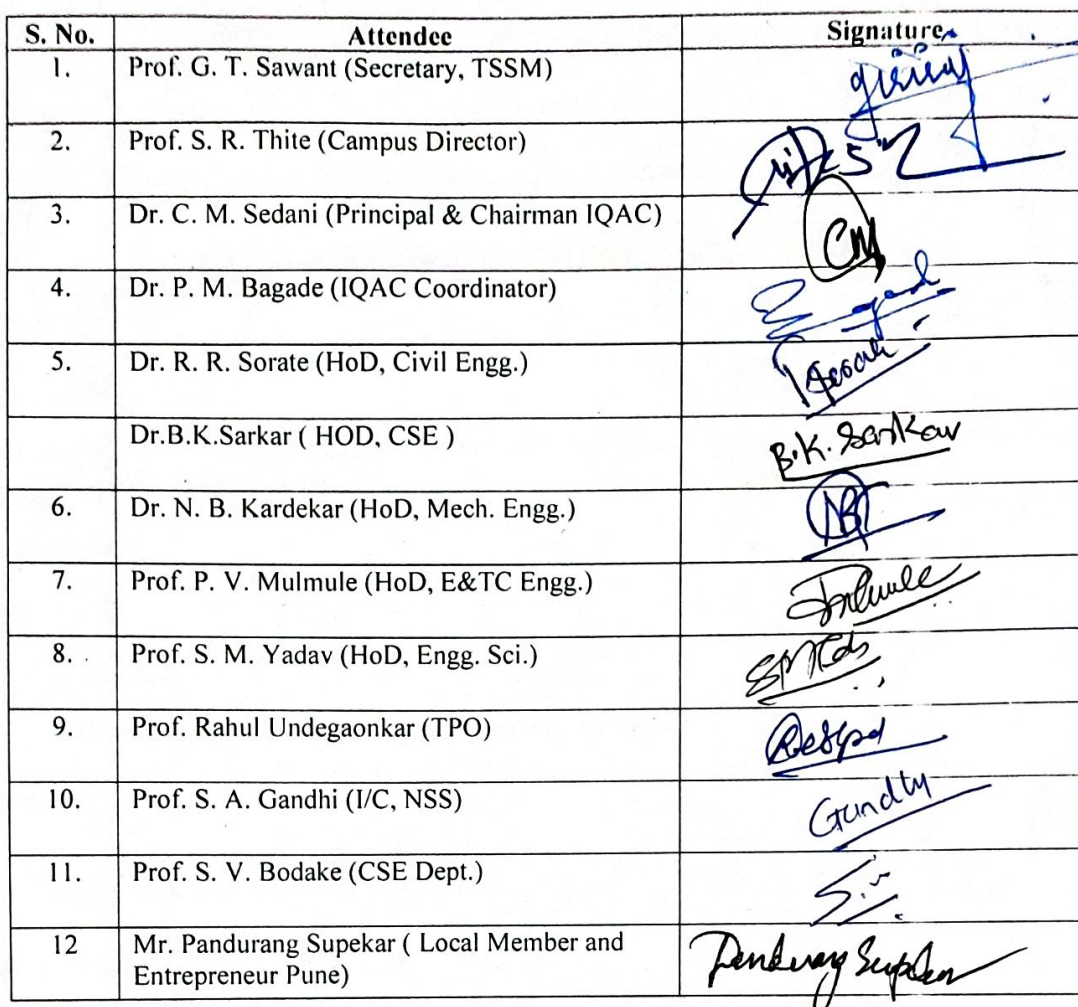 S. No. Attendee Signature
1. Prof. G. T. Sawant (Secretary, TSSM)
2. Prof. S. R. Thite (Campus Director)
3. Dr. C. M. Sedani (Principal & Chairman IQAC) CM
4. Dr. P. M. Bagade (IQAC Coordinator)
5. Dr. R. R. Sorate (HoD, Civil Engg.)
Dr.B.K.Sarkar ( HOD, CSE ) B.K. Sarkar
6. Dr. N. B. Kardekar (HoD, Mech. Engg.)
7. Prof. P. V. Mulmule (HoD, E&TC Engg.)
8. Prof. S. M. Yadav (HoD, Engg. Sci.)
9. Prof. Rahul Undegaonkar (TPO)
10. Prof. S. A. Gandhi (I/C, NSS)
11. Prof. S. V. Bodake (CSE Dept.)
12 Mr. Pandurang Supekar ( Local Member and
Entrepreneur Pune) Pandurang Supekar